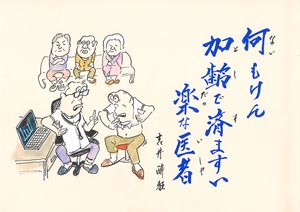 何もけん
加齢で済ますい
楽な医者
吉井